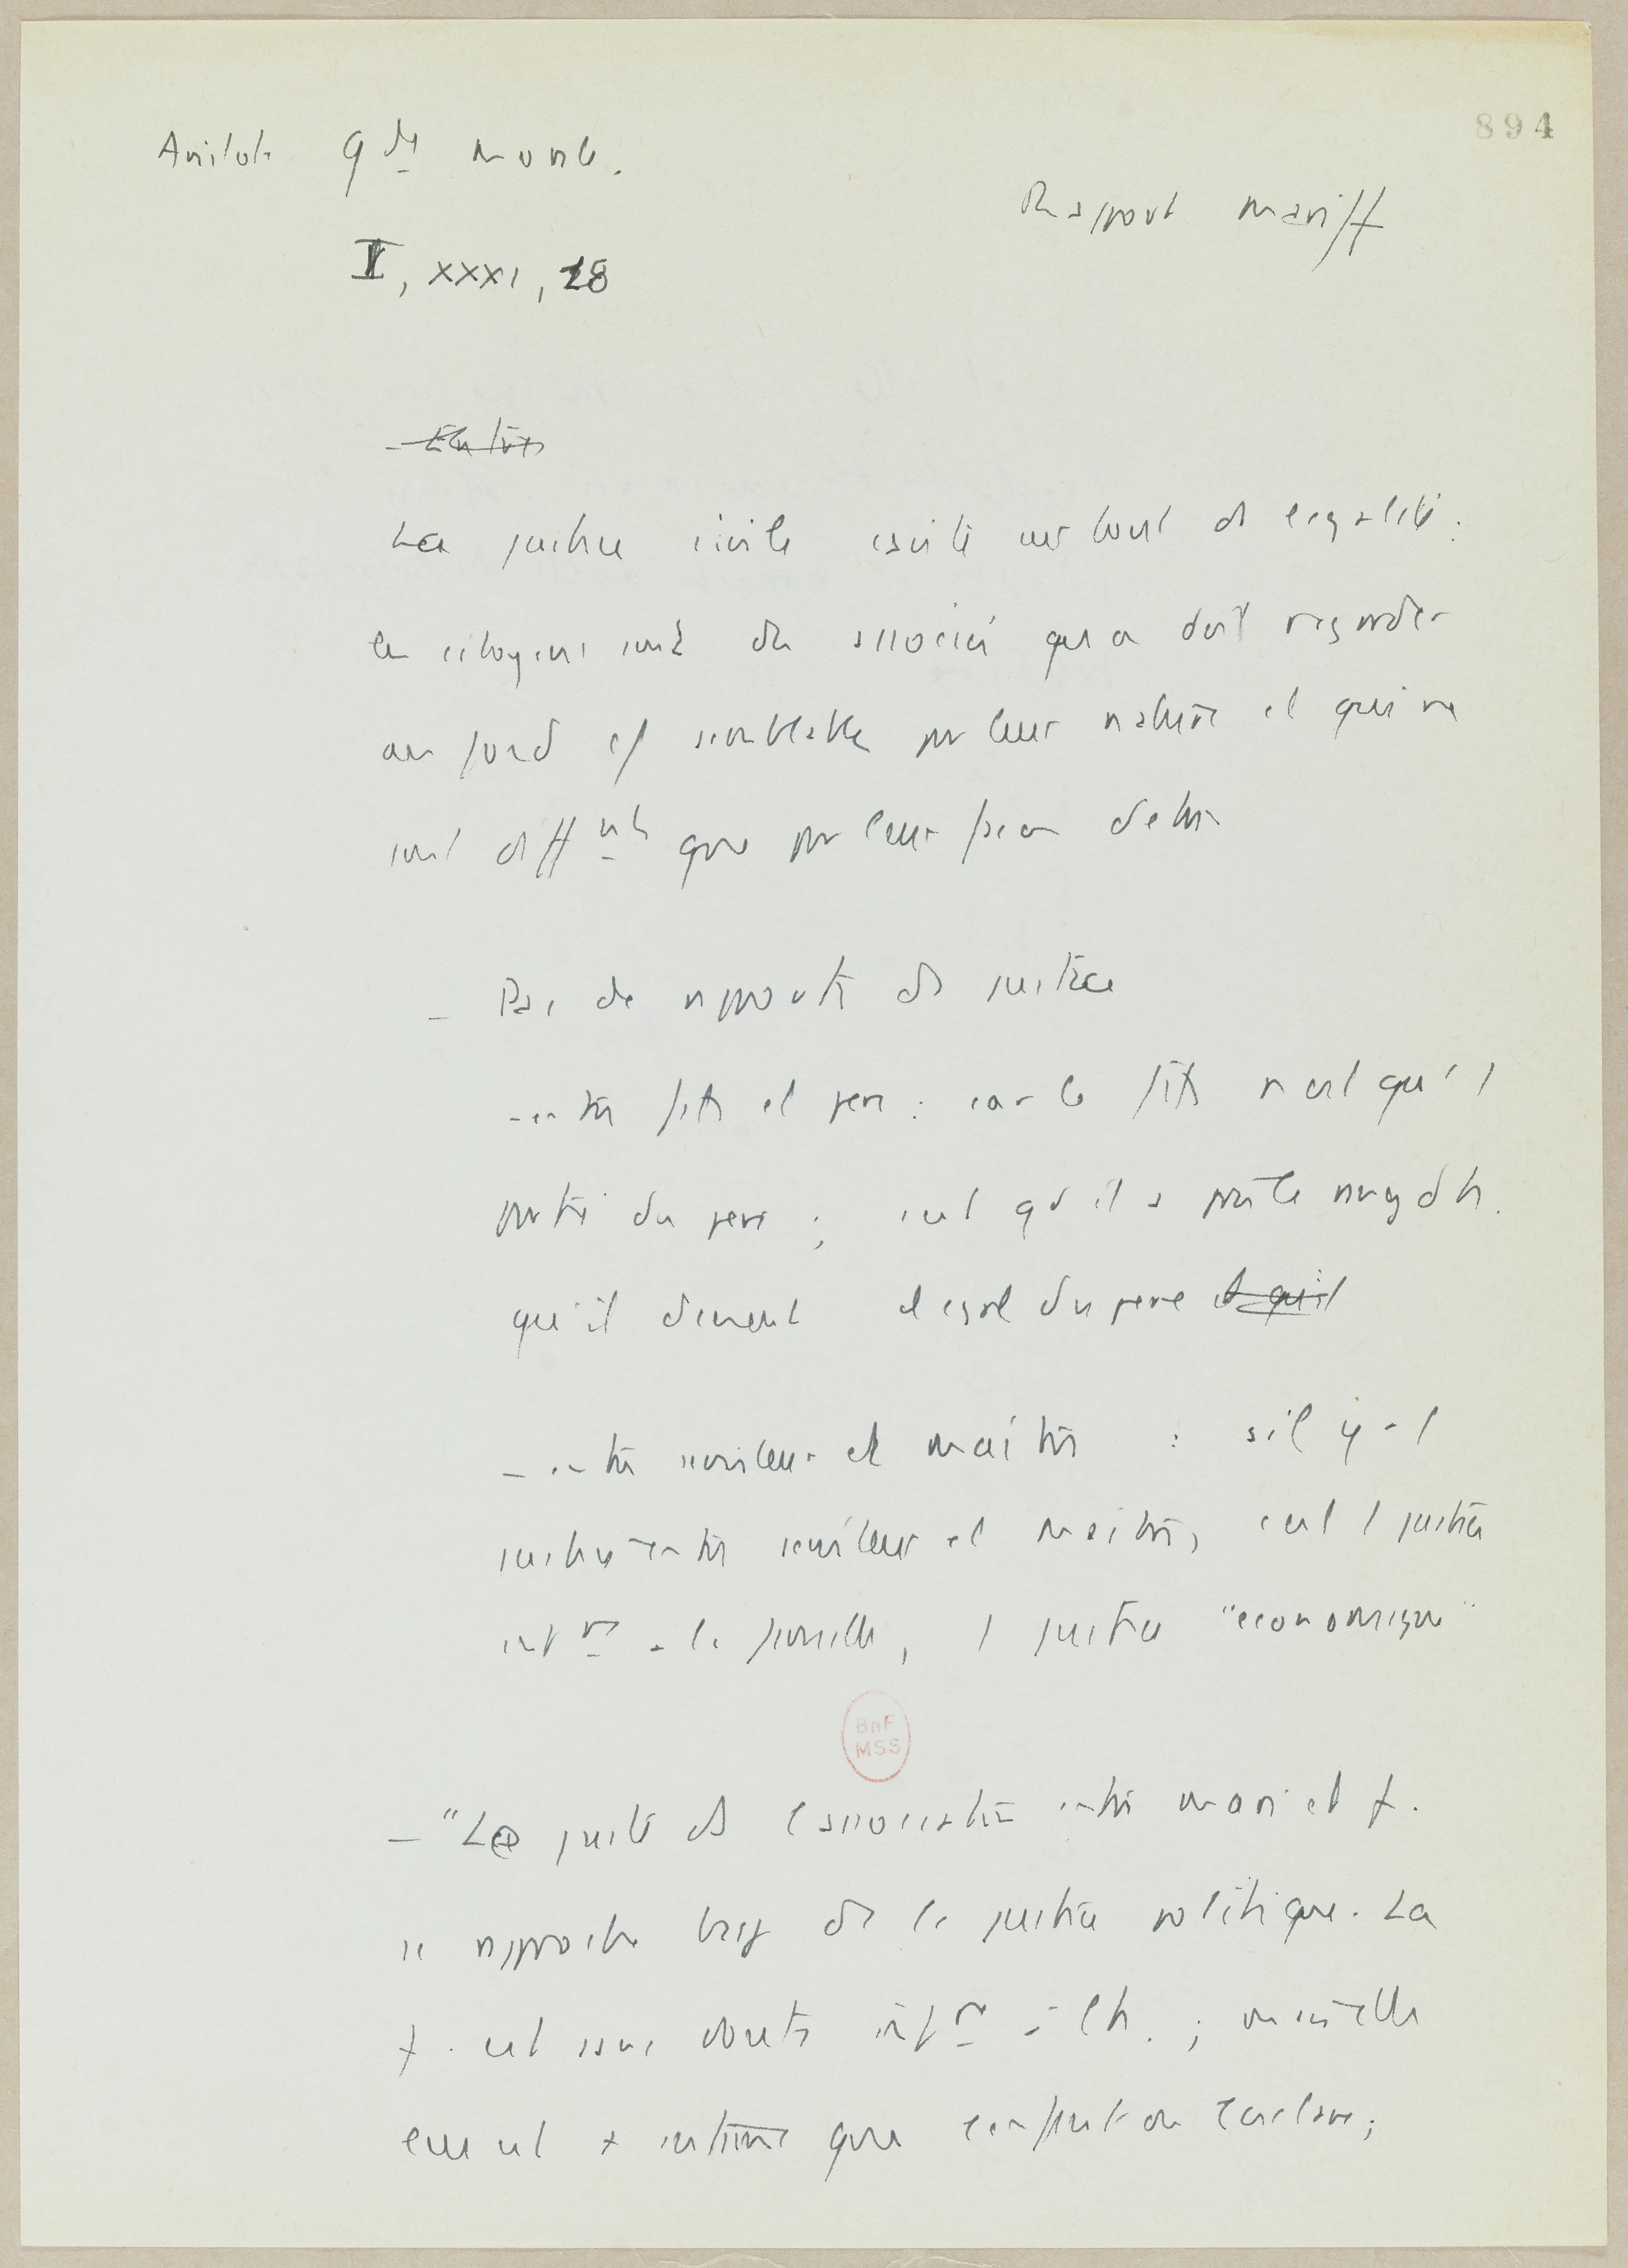 894
Aristote Gde morale.
Rapport mari/f
I, XXXI, 18
La justice civile consiste surtout ds l'egalité :
les citoyens sont des associés qu'on doit regarder
au fond cō semblables par leur nature et qui ne
sont diffnts que par leur façon d'etre
- Pas de rapports de justice
- entre fils et pere : car le fils n'est qu'1
partie du pere ; c'est qd il a pris le rang d'h.
qu'il devient l'egal du pere et qu'il
- entre serviteur et maître : s'il y a 1
justice entre serviteur et maître, c'est 1 justice
intre à la famille, 1 justice "economique"
- "Le juste ds l'association entre mari et f.
se rapproche bcp de la justice politique. La
f. est sans doute infre à l'h. ; mais elle
lui est + intime que l'enfant ou l'esclave ;